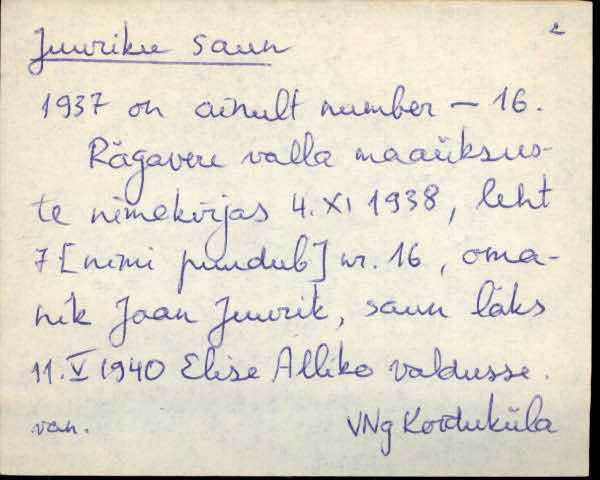 2
Juuriku saun
1937 on ainult number – 16.
Rägavere valla maaüksus-
te nimekirjas 4. XI 1938, leht
7 [nimi puudub] nr. 16, oma-
nik Jaan Juurik, saun läks
11. V 1940 Elise Alliko valdusse.
van. VNg Koeduküla